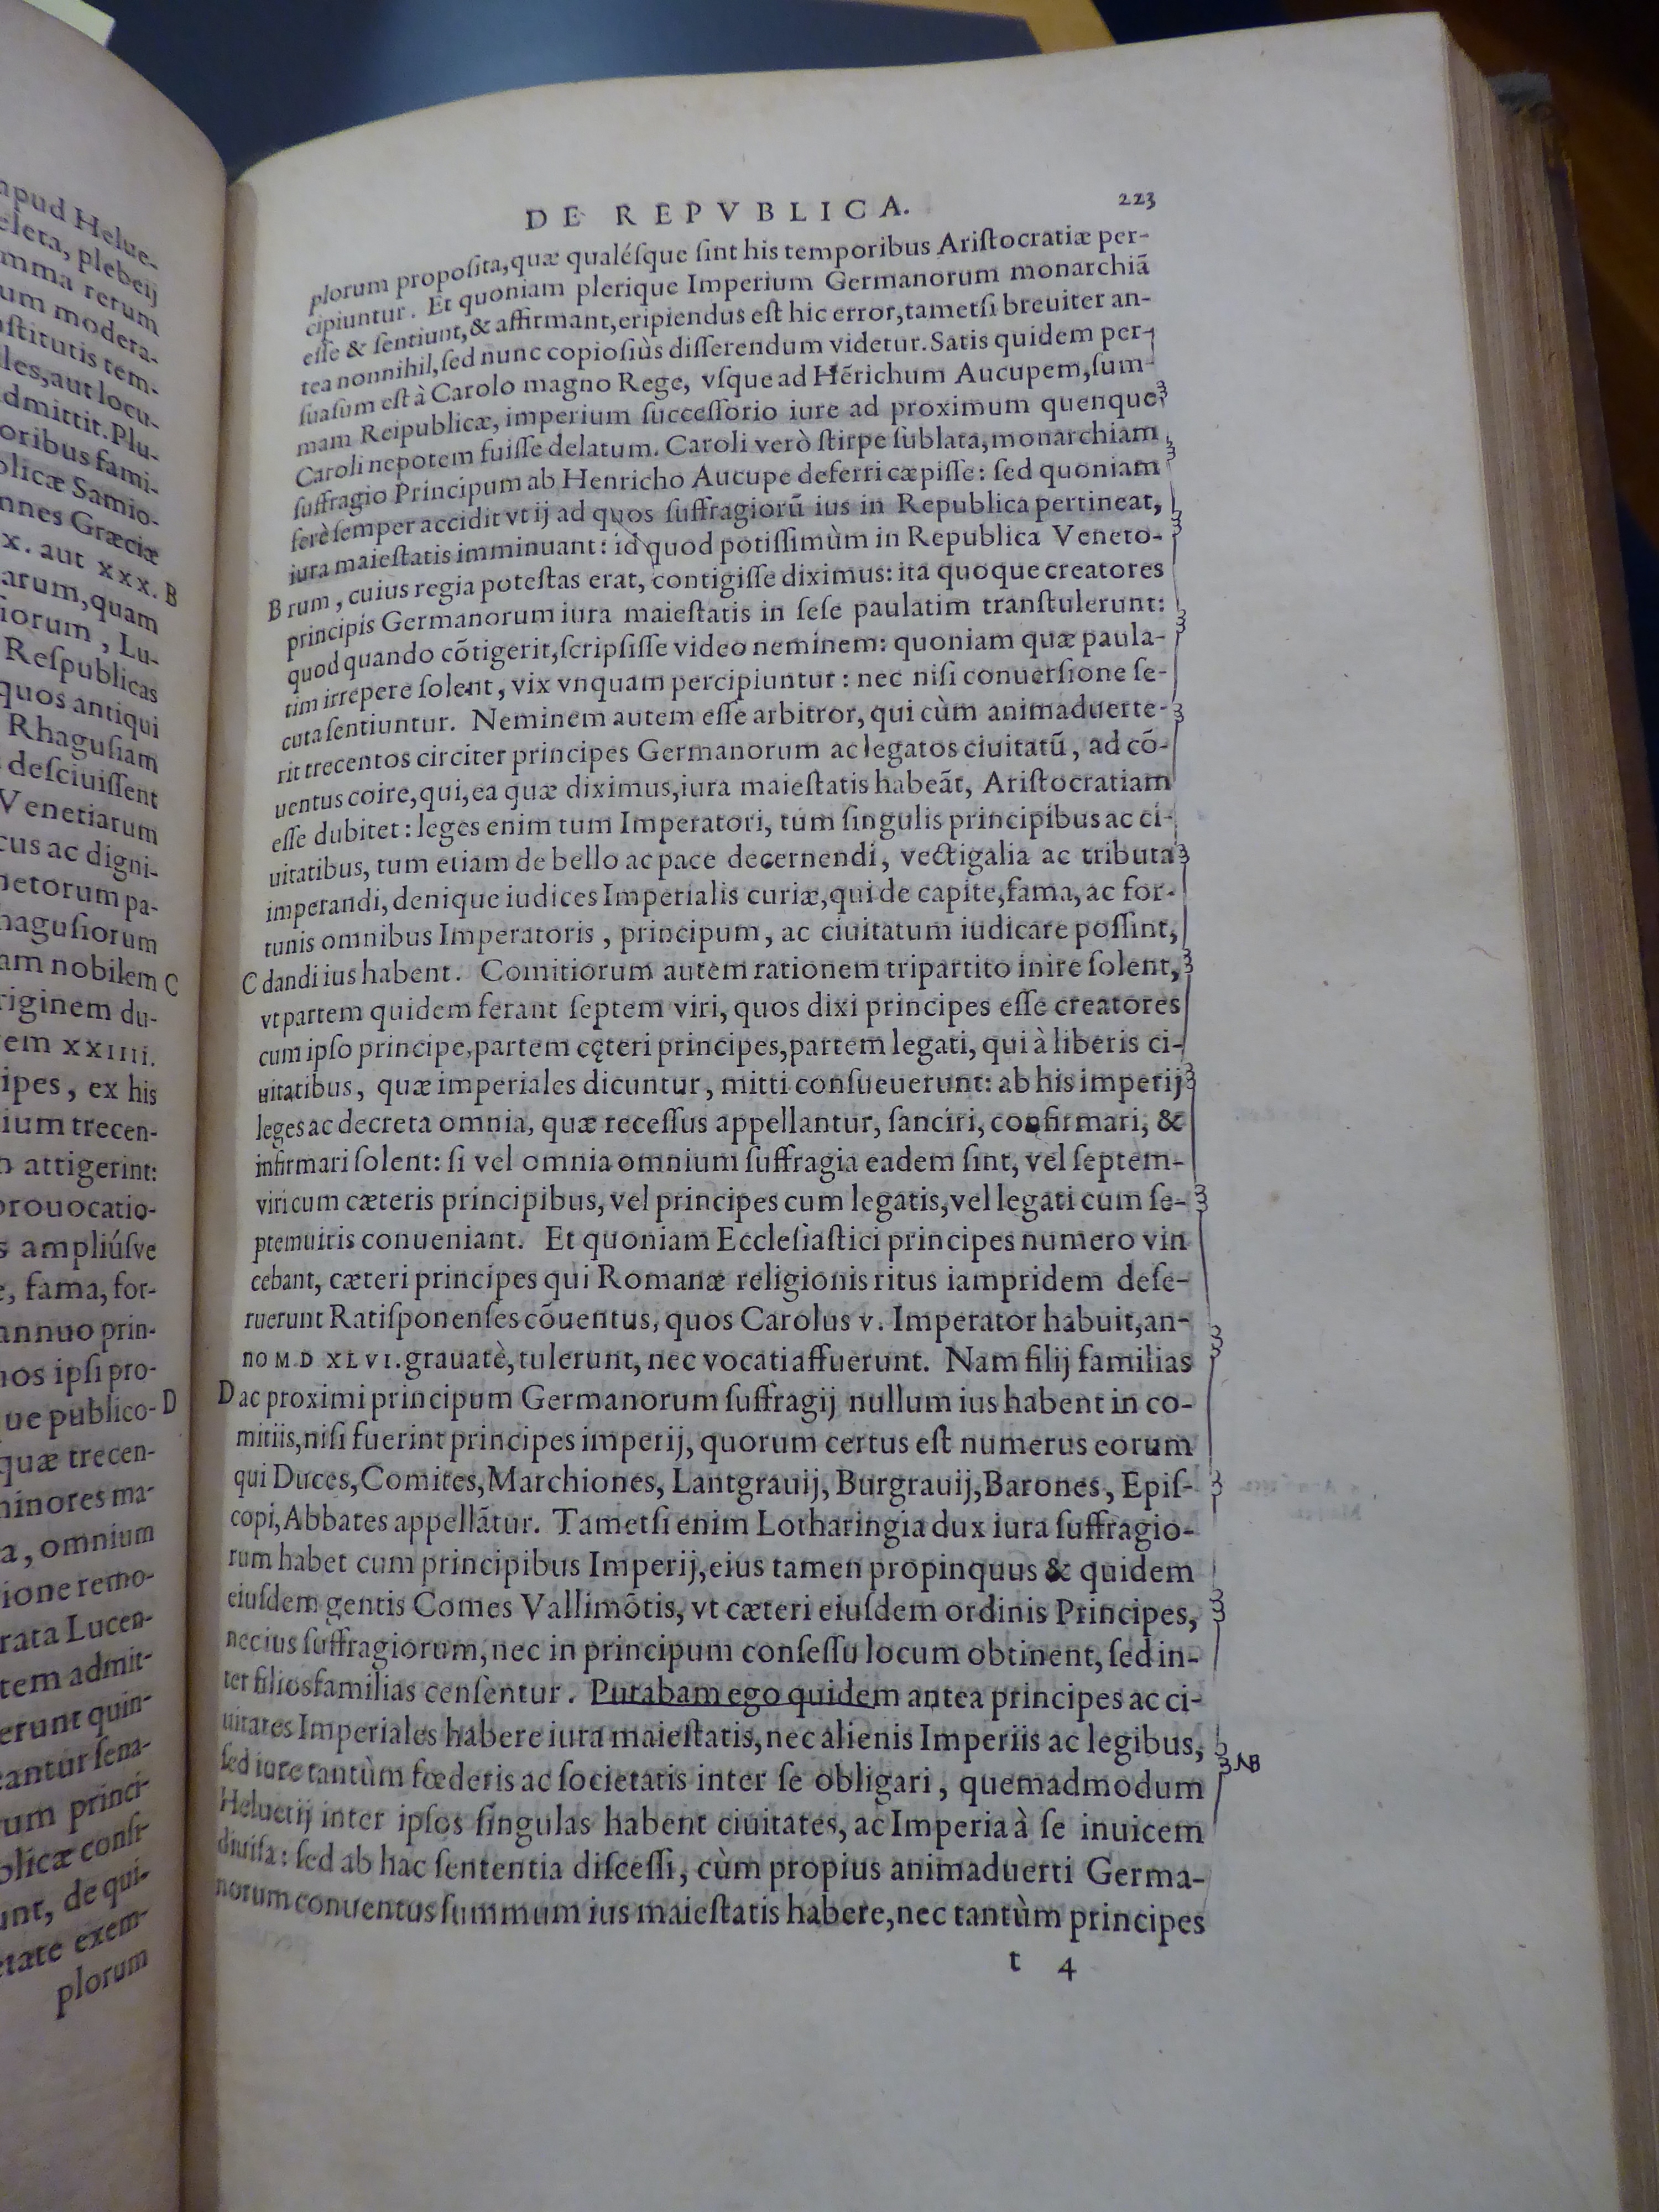 apud Helue-
eleta, plebeij
mma rerum
um modera-
stitutis tem-
lles, aut locu-
dmittit. Plu-
oribus fami-
blicæ Samio-
nnes Græciæ
x. aut xxx. B
arum, quam
iorum, Lu-
Reſpublicas
quos antiqui
Rhaguſiam
deſciuiſſent
Venetiarum
cus ac digni-
netorum pa-
haguſiorum
am nobilem C
riginem du-
em XXIIII.
ipes, ex his
ium trecen-
attigerint:
prouocatio-
s ampliúſve
e, fama, for-
annuo prin-
nos ipſi pro-
ue publico- D
quæ trecen-
minores ma-
a, omnium
ione remo-
rata Lucen-
tem admit-
erunt quin-
eantur ſena-
rum princi-
blicæ conſi-
unt, de qui-
etate exem-
plorum
DE REPVBLICA. 223
plorum propoſita, quæ qualéſque ſint his temporibus Ariſtocratiæ per-
cipiuntur. Et quoniam plerique Imperium Germanorum monarchiã
eſſe & ſentiunt, & affirmant, eripiendus eſt hic error, tametſi breuiter an-
tea nonnihil, ſed nunc copioſiùs diſſerendum videtur. Satis quidem per-
ſuaſum eſt à Carolo magno Rege, vſque ad Hẽrichum Aucupem, ſum-
mam Reipublicæ, imperium ſucceſſorio iure ad proximum quenque
Caroli nepotem fuiſſe delatum. Caroli verò ſtirpe ſublata, monarchiam
ſuffragio Principum ab Henricho Aucupe deferri cæpiſſe: ſed quoniam
ferè ſemper accidit vt ij ad quos ſuffragiorũ ius in Republica pertineat,
iura maieſtatis imminuant: id quod potiſſimùm in Republica Veneto-
B rum, cuius regia poteſtas erat, contigiſſe diximus: ita quoque creatores
principis Germanorum iura maieſtatis in ſeſe paulatim tranſtulerunt:
quod quando cõtigerit, ſcripſiſſe video neminem: quoniam quæ paula-
tim irrepere ſolent, vix vnquam percipiuntur: nec niſi conuerſione ſe-
cuta ſentiuntur. Neminem autem eſſe arbitror, qui cùm animaduerte-
rit trecentos circiter principes Germanorum ac legatos ciuitatũ, ad cõ-
uentus coire, qui, ea quæ diximus, iura maieſtatis habeãt, Ariſtocratiam
eſſe dubitet: leges enim tum Imperatori, tum ſingulis principibus ac ci-
uitatibus, tum etiam de bello ac pace decernendi, vectigalia ac tributa
imperandi, denique iudices Imperialis curiæ, qui de capite, fama, ac for-
tunis omnibus Imperatoris, principum, ac ciuitatum iudicare poſſint,
C dandi ius habent. Comitiorum autem rationem tripartito inire ſolent,
vt partem quidem ferant ſeptem viri, quos dixi principes eſſe creatores
cum ipſo principe, partem cęteri principes, partem legati, qui à liberis ci-
uitatibus, quæ imperiales dicuntur, mitti conſueuerunt: ab his imperij
leges ac decreta omnia, quæ receſſus appellantur, ſanciri, confirmari, &
infirmari ſolent: ſi vel omnia omnium ſuffragia eadem ſint, vel ſeptem-
viri cum cæteris principibus, vel principes cum legatis, vel legati cum ſe-
ptemuiris conueniant. Et quoniam Eccleſiaſtici principes numero vin
cebant, cæteri principes qui Romanæ religionis ritus iampridem deſe-
ruerunt Ratiſponenſes cõuentus, quos Carolus v. Imperator habuit, an-
no M.D XLVI. grauatè, tulerunt, nec vocati affuerunt. Nam filij familias
D ac proximi principum Germanorum ſuffragij nullum ius habent in co-
mitiis, niſi fuerint principes imperij, quorum certus eſt numerus eorum
qui Duces, Comites, Marchiones, Lantgrauij, Burgrauij, Barones, Epiſ-
copi, Abbates appellãtur. Tametſi enim Lotharingia dux iura ſuffragio-
rum habet cum principibus Imperij, eius tamen propinquus & quidem
eiuſdem gentis Comes Vallimõtis, vt cæteri eiuſdem ordinis Principes,
nec ius ſuffragiorum, nec in principum conſeſſu locum obtinent, ſed in-
ter filiosfamilias cenſentur. Putabam ego quidem antea principes ac ci-
uitates Imperiales habere iura maieſtatis, nec alienis Imperiis ac legibus,
NB
ſed iure tantùm fœderis ac ſocietatis inter ſe obligari, quemadmodum
Heluetij inter ipſos ſingulas habent ciuitates, ac Imperia à ſe inuicem
diuiſa: ſed ab hac ſententia diſceſſi, cùm propius animaduerti Germa-
norum conuentus ſummum ius maieſtatis habere, nec tantùm principes
t 4